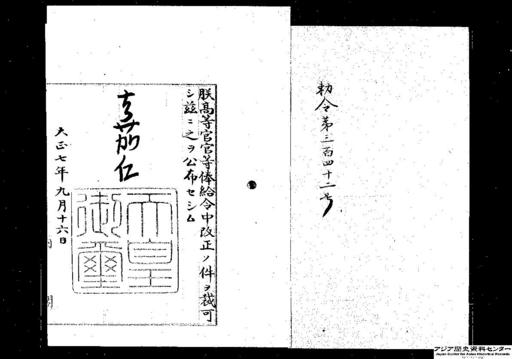 勅令第三百四十二号
朕高等官官等俸給令中改正ノ件ヲ裁可
シ茲ニ之ヲ公布セシム
嘉仁
天皇御璽
大正七年九月十六日
アジア歴史資料センター
Japan Center for Asian Historical Records